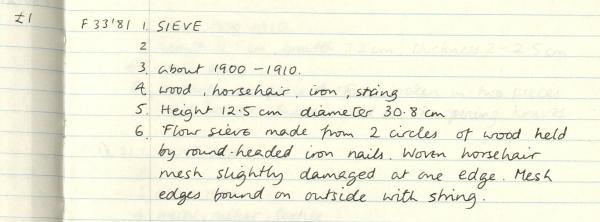 £1 F33'81 1. SIEVE
2
3. about 1900 - 1910.
4. wood, horsehair, iron, string
5. Height 12.5cm diameter 30.8cm
6. Flour sieve made from 2 circles of wood held
by round-headed iron nails. Woven horsehair
mesh slightly damaged at one edge. Mesh
edges bound on outside with string.